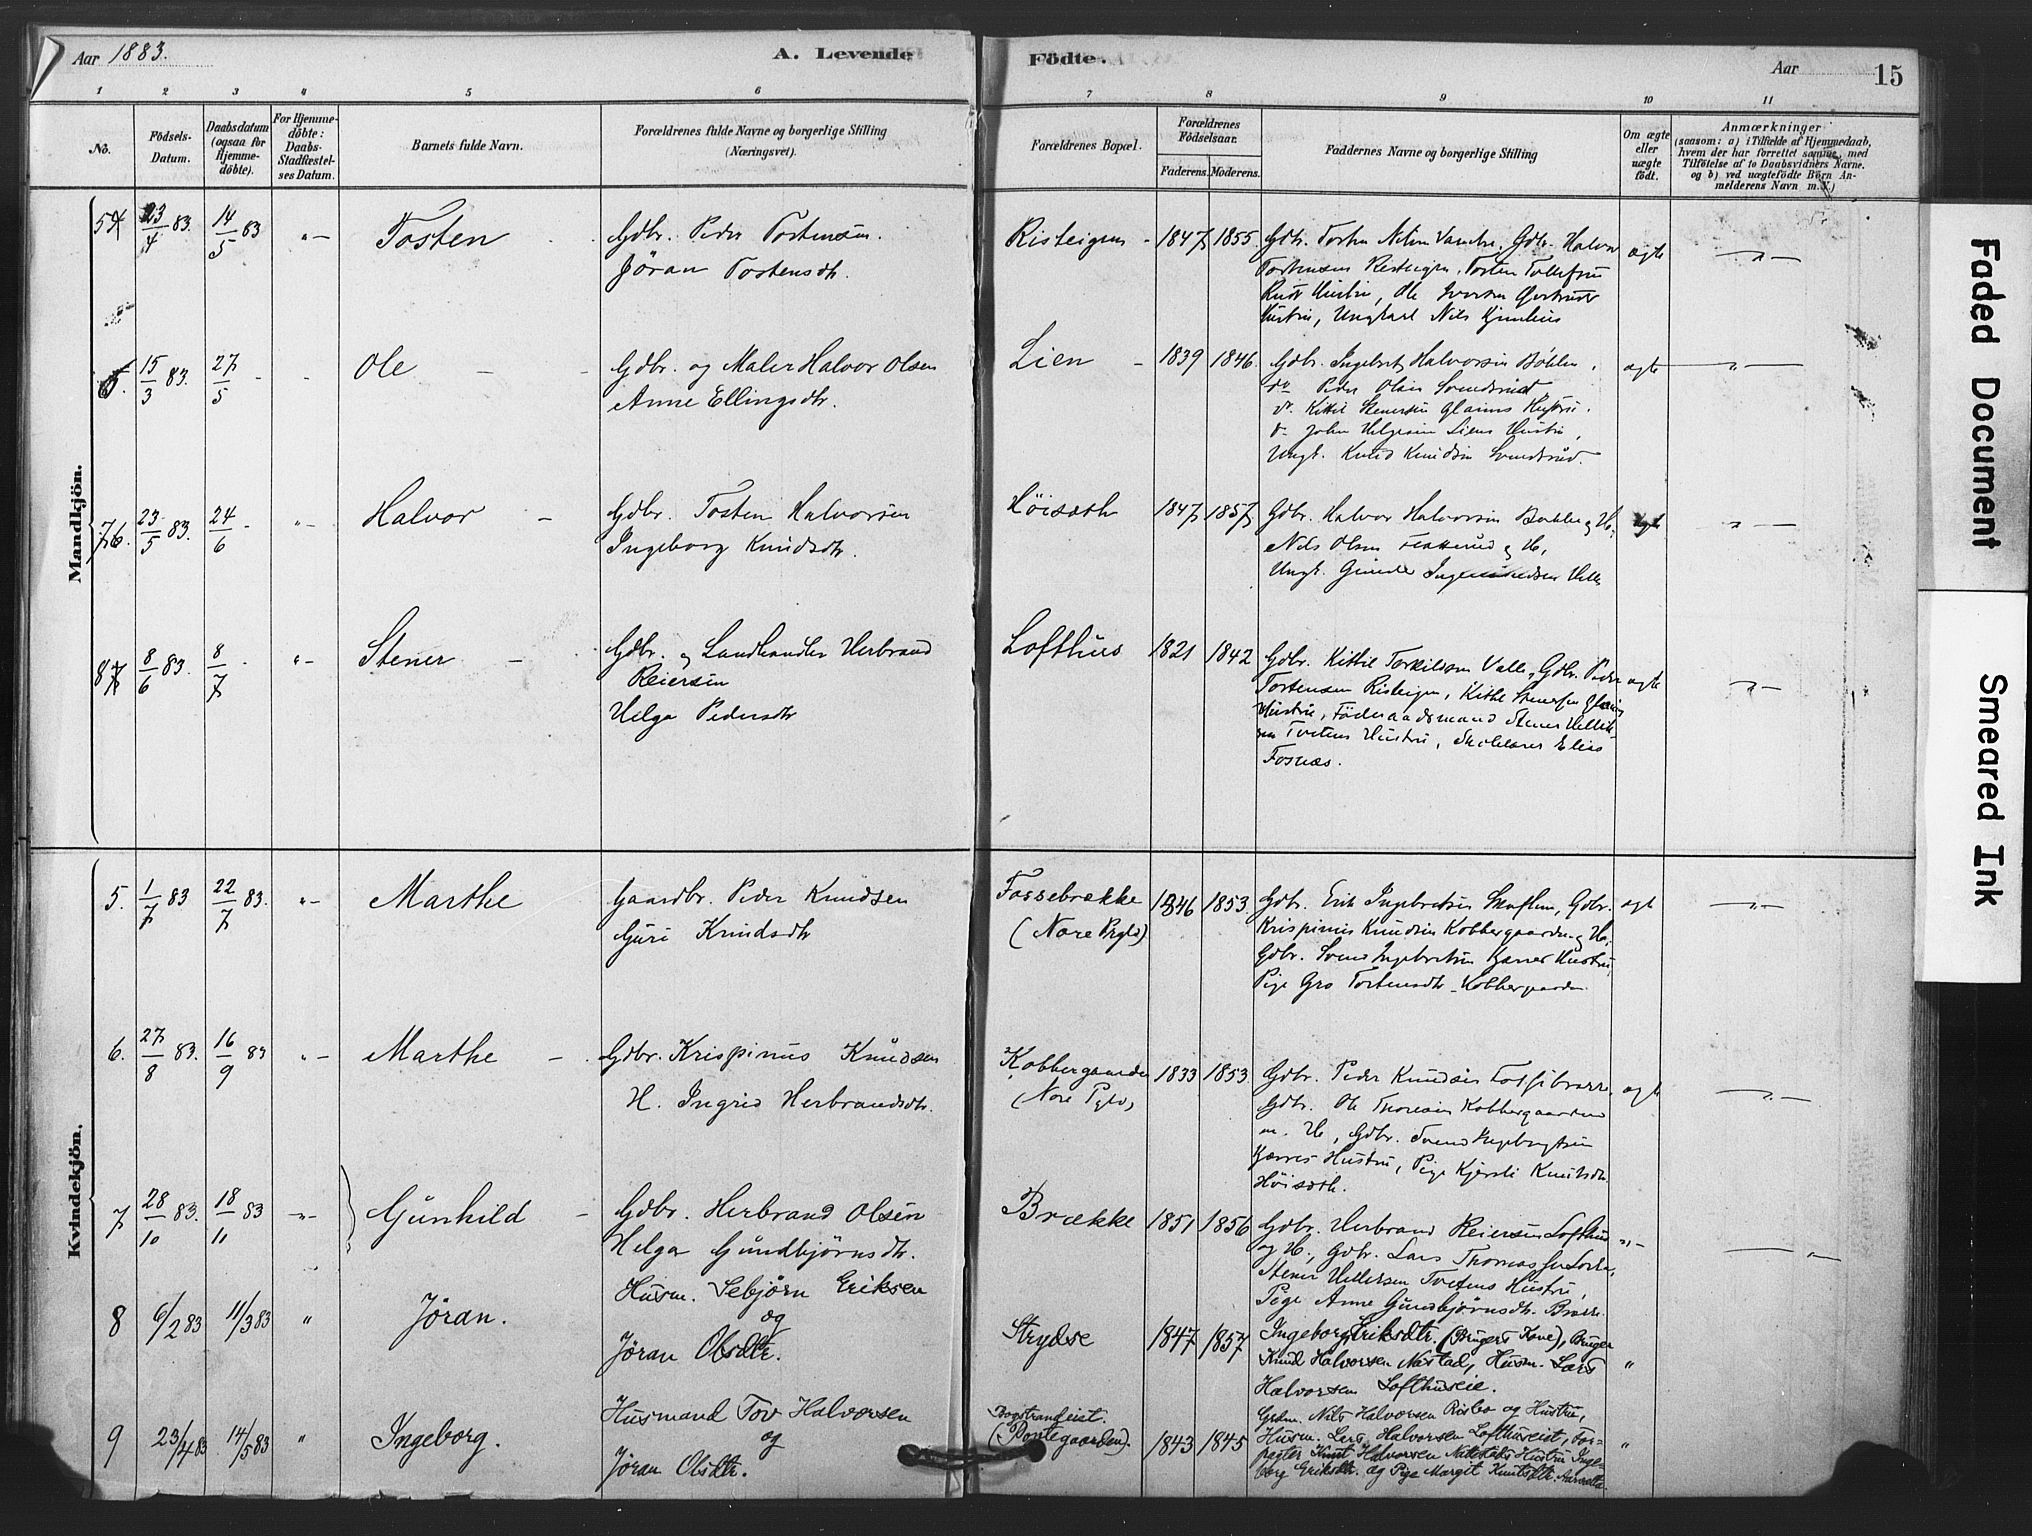 Aar 1883.
A. Levende Födte.
Aar 15
1 2 3 4 5 6 7 8 9 10 11
No.
Födsels-
Datum.
Daabsdatum
(ogsaa for
Hjemme-
döbte).
For Hjemme-
döbte:
Daabs-
Stadfæstel-
ses Datum.
Barnets fulde Navn.
Forældrenes fulde Navne og borgerlige Stilling
(Næringsvei).
Forældrenes Bopæl.
Forældrenes
Födselsaar.
Faderens. Moderens.
Faddernes Navne og borgerlige Stilling
Om ægte
eller
uægte
födt.
Anmærkninger
(saasom: a) i Tilfælde af Hjemmedaab,
hvem der har forrettet samme, med
Tilföielse af to Daabsvidners Navne.
og b) ved uægtefödte Börn An-
melderens Navn m. V.)
Mandkjön.
5 23/4 83. 14/5 83 "– Tosten
Gdbr. Peder Tostensen.
Jöran Tostensdtr.
Risteigen 1847 1855
Gdbr. Tosten Nilsen Gdbr. Halvor
Tostensen Risteigen, Tosten Tollefsen
Hustru, Ole Iversen
Hustru, Ungkarl Nils
ægte
6. 15/3 83. 27/5 Ole
Gdbr. og Maler Halvor Olsen
Anne Ellingsdtr.
Lien 1839 1846.
Gdbr. Ingebret Halvorsen
do Peder Olsen Svendsrud
do Kittil Stenersen Glaims Hustru.
do John Helgesen Liens Hustru,
Ungk. Knud Knudsen Svendsrud.
ægte
7 23/5 83. 24/6 "– Halvor
Gdbr. Tosten Halvorsen
Ingeborg Knudsdtr.
Höisæth 1847 1857
Gdbr. Halvor Halvorsen og H.,
Nils Olsen og H,
Ungk. Gunder
ægte
8 8/6 83. 8/7 "– Stener
Gdbr. og Landhandler Herbrand
Reiersen
Helga Pedersdtr
Lofthus 1821 1842
Gdbr. Kittil Torkilsen Valle, Gdbr. Peder
Tostensen Risteigen, Kittil Stenersen Glaims
Hustru, Föderaadsmand Stener Hellik-
sen Tvetens Hustru, Skolelærer Elias
Fosnæs.
ægte
Kvindekjön.
5. 1/7 83 22/7 83. "– Marthe
Gaardbr. Peder Knudsen
Guri Knudsdtr
Fossebrække
(Nore Prgld)
1846 1853
Gdbr. Erik Ingebretsen Skaflem, Gdbr.
Krispinus Knudsen Kobbergaarden og H.
Gdbr. Svend Ingebretsen Hustru,
Pige Gro Tostensdtr Kobbergaarden
ægte
6. 27/8 83. 16/9 83 "– Marthe
Gdbr. Krispinus Knudsen
H. Ingrid Herbrandsdtr.
Kobbergaarden
(Nore Pgld)
1833 1853
Gdbr. Peder Knudsen Fossebrække
Gdbr. Ole Thoresen Kobbergaarden
m. H, Gdbr. Svend Ingebrigtsen
Hustru, Pige Kjersti Knutsdtr.
Höisæth.
ægte
7 28/10 83. 18/11 83 "– Gunhild
Gdbr. Herbrand Olsen
Helga Gundbjörnsdtr.
Brække 1851 1856
Gdbr. Herbrand Reiersen Lofthus
og H., Gdbr. Lars Thomassen
Stener Helliksen Tvetens Hustru,
Pige Anne Gundbjörnsdtr. Brække.
"–
8 6/2 83 11/3 83 " Jöran.
Husm. Sebjörn Eriksen
og
Jöran Olsdtr.
Strydse 1847 1857
Ingeborg Eriksdtr. (Brugers Kone), Bruger
Knud Halvorsen Næstad, Husm. Lars
Halvorsen Lofthuseie.
"
9 23/4 83 14/5 83 " Ingeborg.
Husmand Tov Halvorsen
og
Jöran Olsdtr.
(Pontegaarden).
1843 1845
Grdm. Nils Halvorsen Risbo og Hustru,
Husm. Lars Halvorsen Lofthuseiet, For-
pagter Knut Halvorsen Hustru Inge-
borg Eriksdtr. og Pige Margit Knutsdtr.
"
Faded Document
Smeared Ink